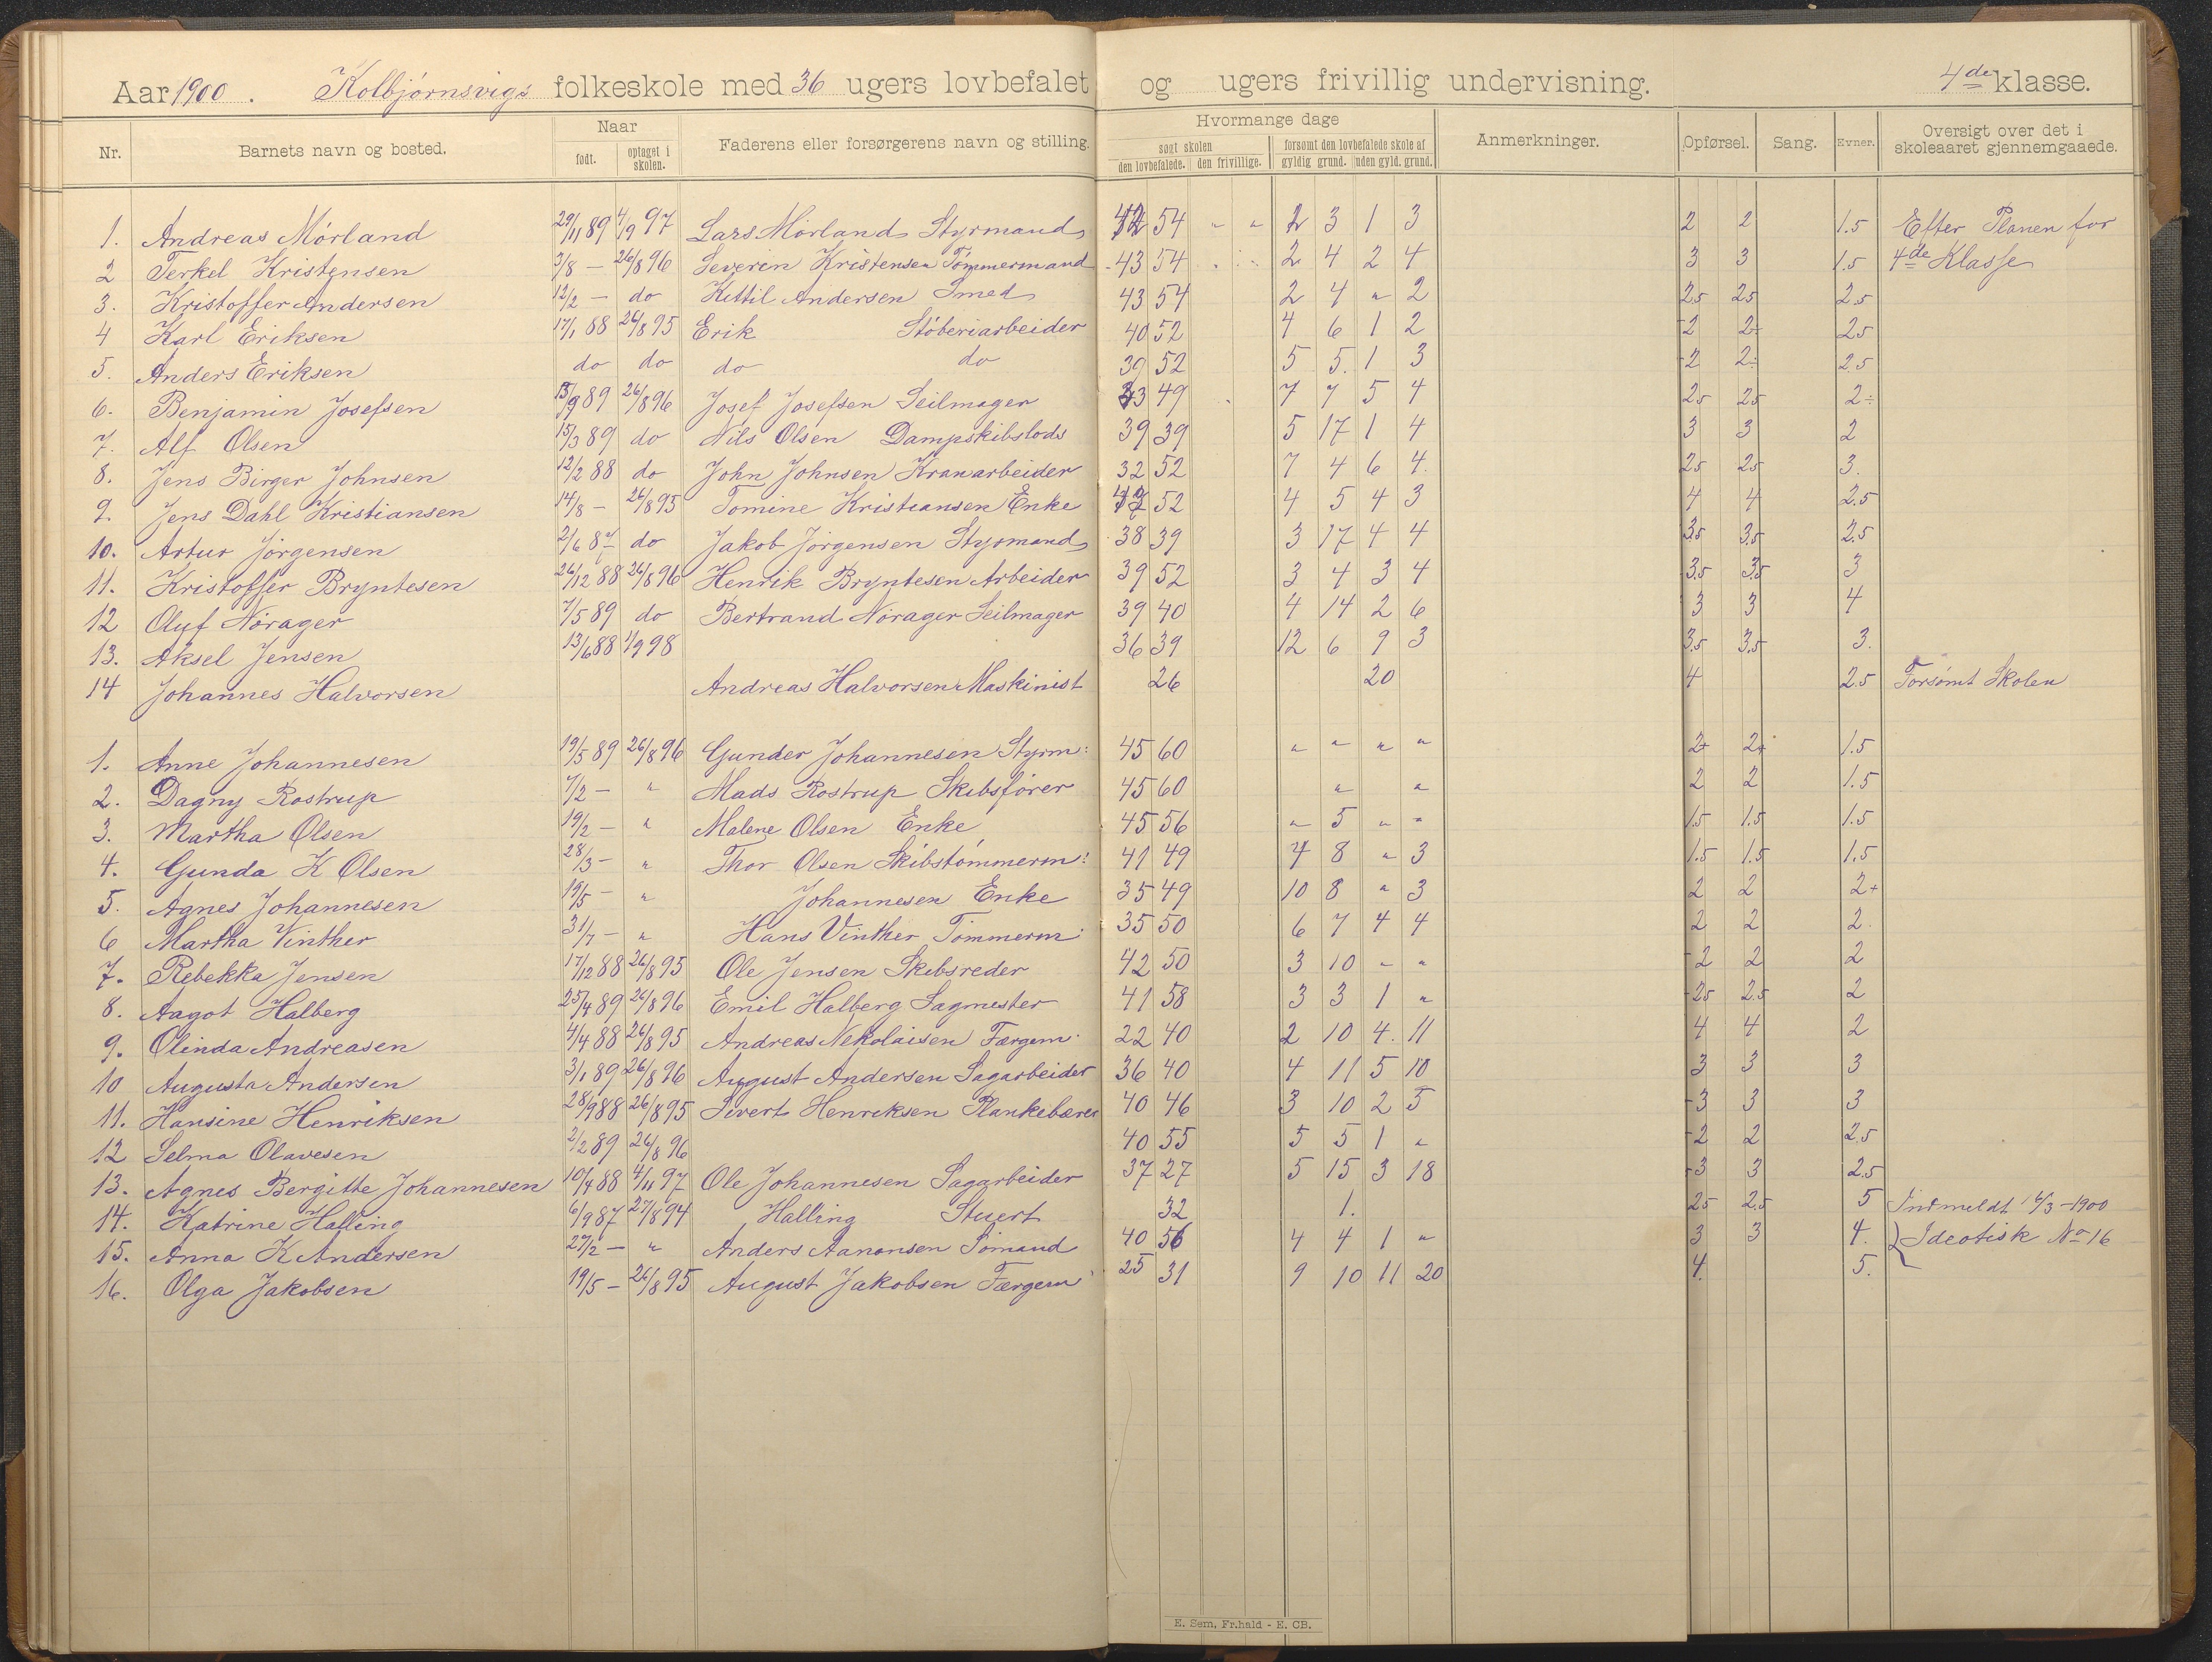 Aar 1900. Kolbjørnsvigs folkeskole med 36 ugers lovbefalet og ugers frivillig undervisning. 4de klasse.
Nr. Barnets navn og bosted. Naar født. optaget i skolen. Faderens eller forsørgerens navn og stilling. Hvormange dage søgt skolen den lovbefalede. den frivillige. forsømt den lovbefalede skole af gyldig grund. uden gyld. grund. Anmerkninger. Opførsel. Sang. Evner. Oversigt over det i skoleaaret gjennemgaaede.
1. Andreas Mörland 29/11 89 4/9 97 Lars Mörland Styrmand 42 54 " " 2 3 1 3 2 2 1.5 Efter Planen for
2 Terkel Kristensen 3/8 – 26/8 96 Severen Kristensen Tömmermand 43 54 2 4 2 4 3 3 1.5 4de Klasse
3. Kristoffer Andersen 12/2 – do Kittil Andersen Smed 43 54 2 4 " 2 2.5 2.5 2.5
4 Karl Eriksen 17/1 88 26/8 95 Erik Stöberiarbeider 40 52 4 6 1 2 2 2 2.5
5. Anders Eriksen do do do do 39 52 5 5. 1 3 2 2 2.5
6. Benjamin Josefsen 13/9 89 26/8 96 Josef Josefsen Seilmager 33 49 7 7 5 4 2.5 2.5 2÷
7. Alf Olsen 15/3 89 do Nils Olsen Dampskibslods 39 39 5 17 1 4 3 3 2
8. Jens Birger Johnsen 12/2 88 do John Johnsen Kranarbeider 32 52 7 4 6 4. 2.5 2.5 3.
9. Jens Dahl Kristiansen 14/8 – 26/8 95 Tomine Kristiansen Enke 52 4 5 4 3 4 4 2.5
10. Artur Jörgensen 2/6 87 do Jakob Jörgensen Styrmand 38 39 3 17 4 4 3.5 3.5 2.5
11. Kristoffer Bryntesen 26/12 88 26/8 96 Henrik Bryntesen Arbeider 39 52 3 4 3 4 3.5 3.5 3
12 Oluf Nörager 7/5 89 do Bertrand Nörager Seilmager 39 40 4 14 2 6 3 3 4
13. Aksel Jensen 13/6 88 1/9 98 36 39 12 6 9 3 3.5 3.5 3.
14 Johannes Halvorsen Andreas Halvorsen Maskinist 26 20 4 2.5 Forsömt Skolen
1. Anne Johannesen 19/5 89 26/8 96 Gunder Johannesen Styrm: 45 60 " " " " 2+ 2+ 1.5
2. Dagny Rostrup 7/2 – " Mads Rostrup Skibsförer 45 60 " " 2 2 1.5
3. Martha Olsen 19/2 – " Malene Olsen Enke 45 56 " 5 " " 1.5 1.5 1.5
4. Gunda K Olsen 28/3 – " Thor Olsen Skibstömmerm: 41 49 4 8 " 3 1.5 1.5 1.5
5. Agnes Johannesen 19/5 – " Johannesen Enke 35 49 10 8 " 3 2 2 2+
6 Martha Vinther 31/7 – " Hans Vinther Tömmerm. 35 50 6 7 4 4 2 2 2.
7. Rebekka Jensen 17/12 88 26/8 95 Ole Jensen Skibsreder 42 50 3 10 " " 2 2 2
8. Aagot Halberg 25/4 89 26/8 96 Emil Halberg Sagmester 41 58 3 3 1 " 2.5 2.5 2
9. Olinda Andreasen 4/4 88 26/8 95 Andreas Nekolaisen Færgem. 22 40 2 10 4. 11 4 4 2
10 Augusta Andersen 3/1 89 26/8 96 August Andersen Sagarbeider 36 40 4 11 5 10 3 3 3
11. Hansine Henriksen 28/9 88 26/8 95 Sivert Henreksen Plankebærer 40 46 3 10 2 5 3 3 3
12 Selma Olavesen 2/2 89 26/8 96 40 55 5 5 1 " 2 2 2.5
13. Agnes Bergitte Johannesen 10/4 88 4/11 97 Ole Johannesen Sagarbeider 37 27 5 15 3 18 3 3 2.5
14. Katrine Halling 6/9 87 27/8 94 Halling Stuert 32 1. 2.5 2.5 5 Indmeldt /3–1900
15. Anna K Andersen 27/2 – " Anders Aanonsen Sömand 40 56 4 4 1 " 3 3 4. Ideotisk No 16
16. Olga Jakobsen 19/5 – 26/8 95 August Jakobsen Færgem 25 31 9 10 11 20 4. 5.
E. Sem, Fr.hald - E. CB.